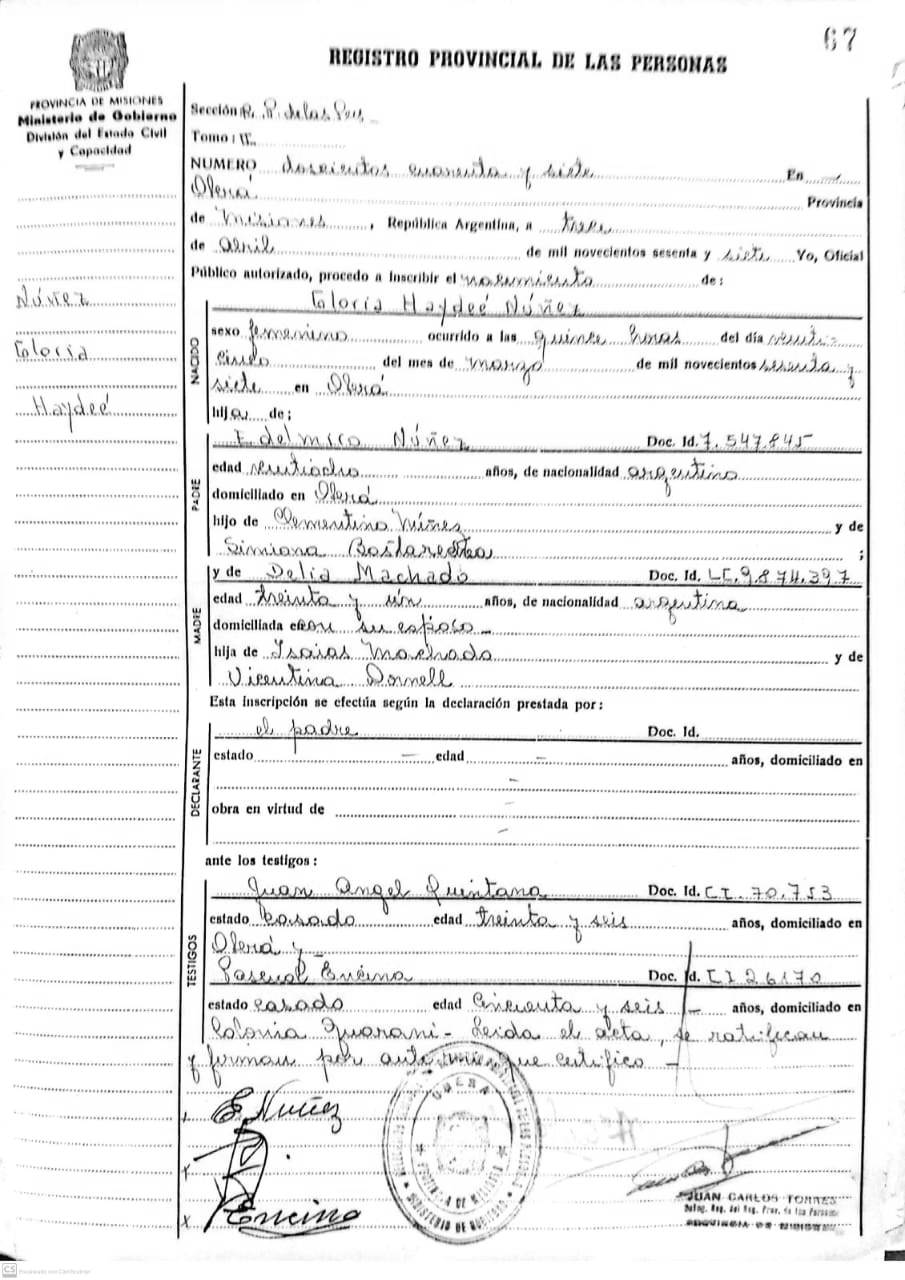 67
REGISTRO PROVINCIAL DE LAS PERSONAS
PROVINCIA DE MISIONES
Ministerio de Gobierno
División del Estado Civil
y Capacidad
Sección R. P. de las Pers.
Tomo: II.
NUMERO doscientos cuarenta y siete En
Oberá Provincia
de Misiones, República Argentina, a trece
de abril de mil novecientos sesenta y siete Yo, Oficial
Público autorizado, procedo a inscribir el nacimiento de:
Núñez
Gloria
Haydeé
NACIDO
Gloria Haydeé Núñez
sexo femenino ocurrido a las quince horas del día veinti-
cinco del mes de marzo de mil novecientos sesenta y
siete en Oberá
hija de;
PADRE
Edelmiro Núñez Doc. Id. 7.547.845
edad veintiocho años, de nacionalidad argentino
domiciliado en Oberá
hijo de Clementino Núñes y de
Simiona ;
MADRE
y de Delia Machado Doc. Id. LC.9.874.397
edad treinta y ún años, de nacionalidad argentina
domiciliada con su esposo
hija de Isaias Machado y de
Vicentina Dornell
Esta inscripción se efectúa según la declaración prestada por:
DECLARANTE
el padre Doc. Id.
estado — edad — años, domiciliado en
obra en virtud de
ante los testigos:
TESTIGOS
Juan Angel Quintana Doc. Id. C.I. 70.753
estado casado edad treinta y seis años, domiciliado en
Oberá y
Pascual Encina Doc. Id. C I 26170
estado casado edad Cincuenta y seis años, domiciliado en
Colonia Guaraní - Leida el acta, se ratifican
y firman por ante mi que certifico
E. Nuñez
Encina
OBERA
PROVINCIA DE MISIONES
MINISTERIO DE GOBIERNO
JUAN CARLOS TORRES
Deleg. Reg. del Reg. Prov. de las Personas
PROVINCIA DE MISIONES
CS